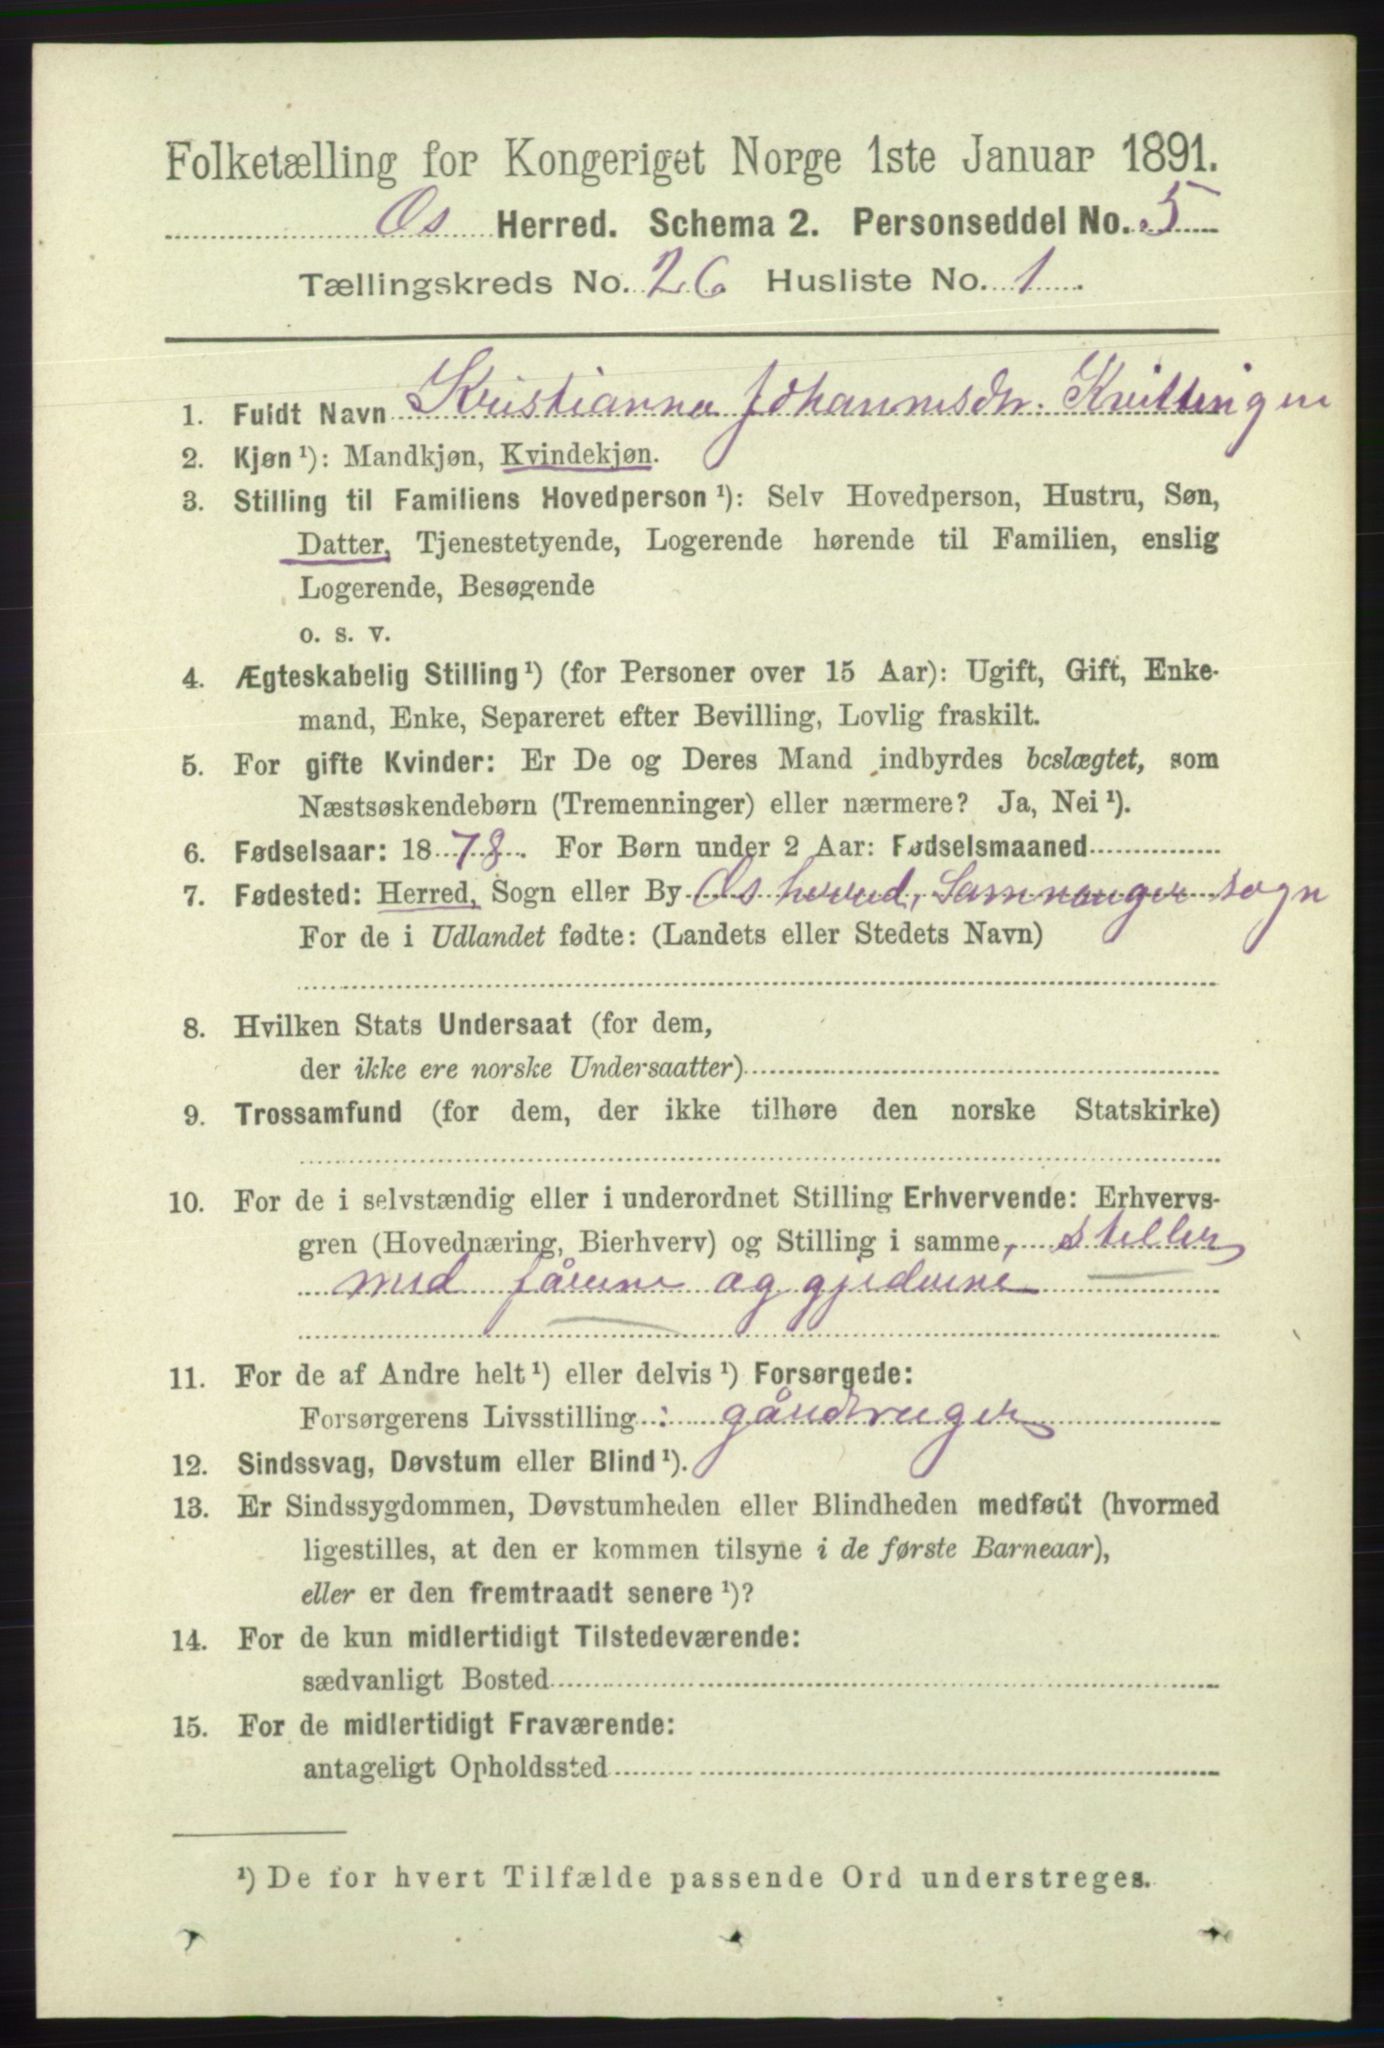 Folketælling for Kongeriget Norge 1ste Januar 1891.
Os Herred. Schema 2. Personseddel No. 5
Tællingskreds No. 26 Husliste No. 1.
1. Fuldt Navn Kristianna Johannesdtr. Kvittingen
2. Kjøn ¹): Mandkjøn, Kvindekjøn.
3. Stilling til Familiens Hovedperson ¹): Selv Hovedperson, Hustru, Søn,
Datter, Tjenestetyende, Logerende hørende til Familien, enslig
Logerende, Besøgende
o. s. v.
4. Ægteskabelig Stilling ¹) (for Personer over 15 Aar): Ugift, Gift, Enke-
mand, Enke, Separeret efter Bevilling, Lovlig fraskilt.
5. For gifte Kvinder: Er De og Deres Mand indbyrdes beslægtet, som
Næstsøskendebørn (Tremenninger) eller nærmere? Ja, Nei ¹).
6. Fødselsaar: 1878. For Børn under 2 Aar: Fødselsmaaned
7. Fødested: Herred, Sogn eller By Os herred, Samnanger sogn
For de i Udlandet fødte: (Landets eller Stedets Navn)
8. Hvilken Stats Undersaat (for dem,
der ikke ere norske Undersaatter)
9. Trossamfund (for dem, der ikke tilhøre den norske Statskirke)
10. For de i selvstændig eller i underordnet Stilling Erhvervende: Erhvervs-
gren (Hovednæring, Bierhverv) og Stilling i samme, steller
med fårene og gjederne
11. For de af Andre helt ¹) eller delvis ¹) Forsørgede:
Forsørgerens Livsstilling: gårdbruger
12. Sindssvag, Døvstum eller Blind ¹).
13. Er Sindssygdommen, Døvstumheden eller Blindheden medfødt (hvormed
ligestilles, at den er kommen tilsyne i de første Barneaar),
eller er den fremtraadt senere ¹)?
14. For de kun midlertidigt Tilstedeværende:
sædvanligt Bosted
15. For de midlertidigt Fraværende:
antageligt Opholdssted
¹) De for hvert Tilfælde passende Ord understreges.